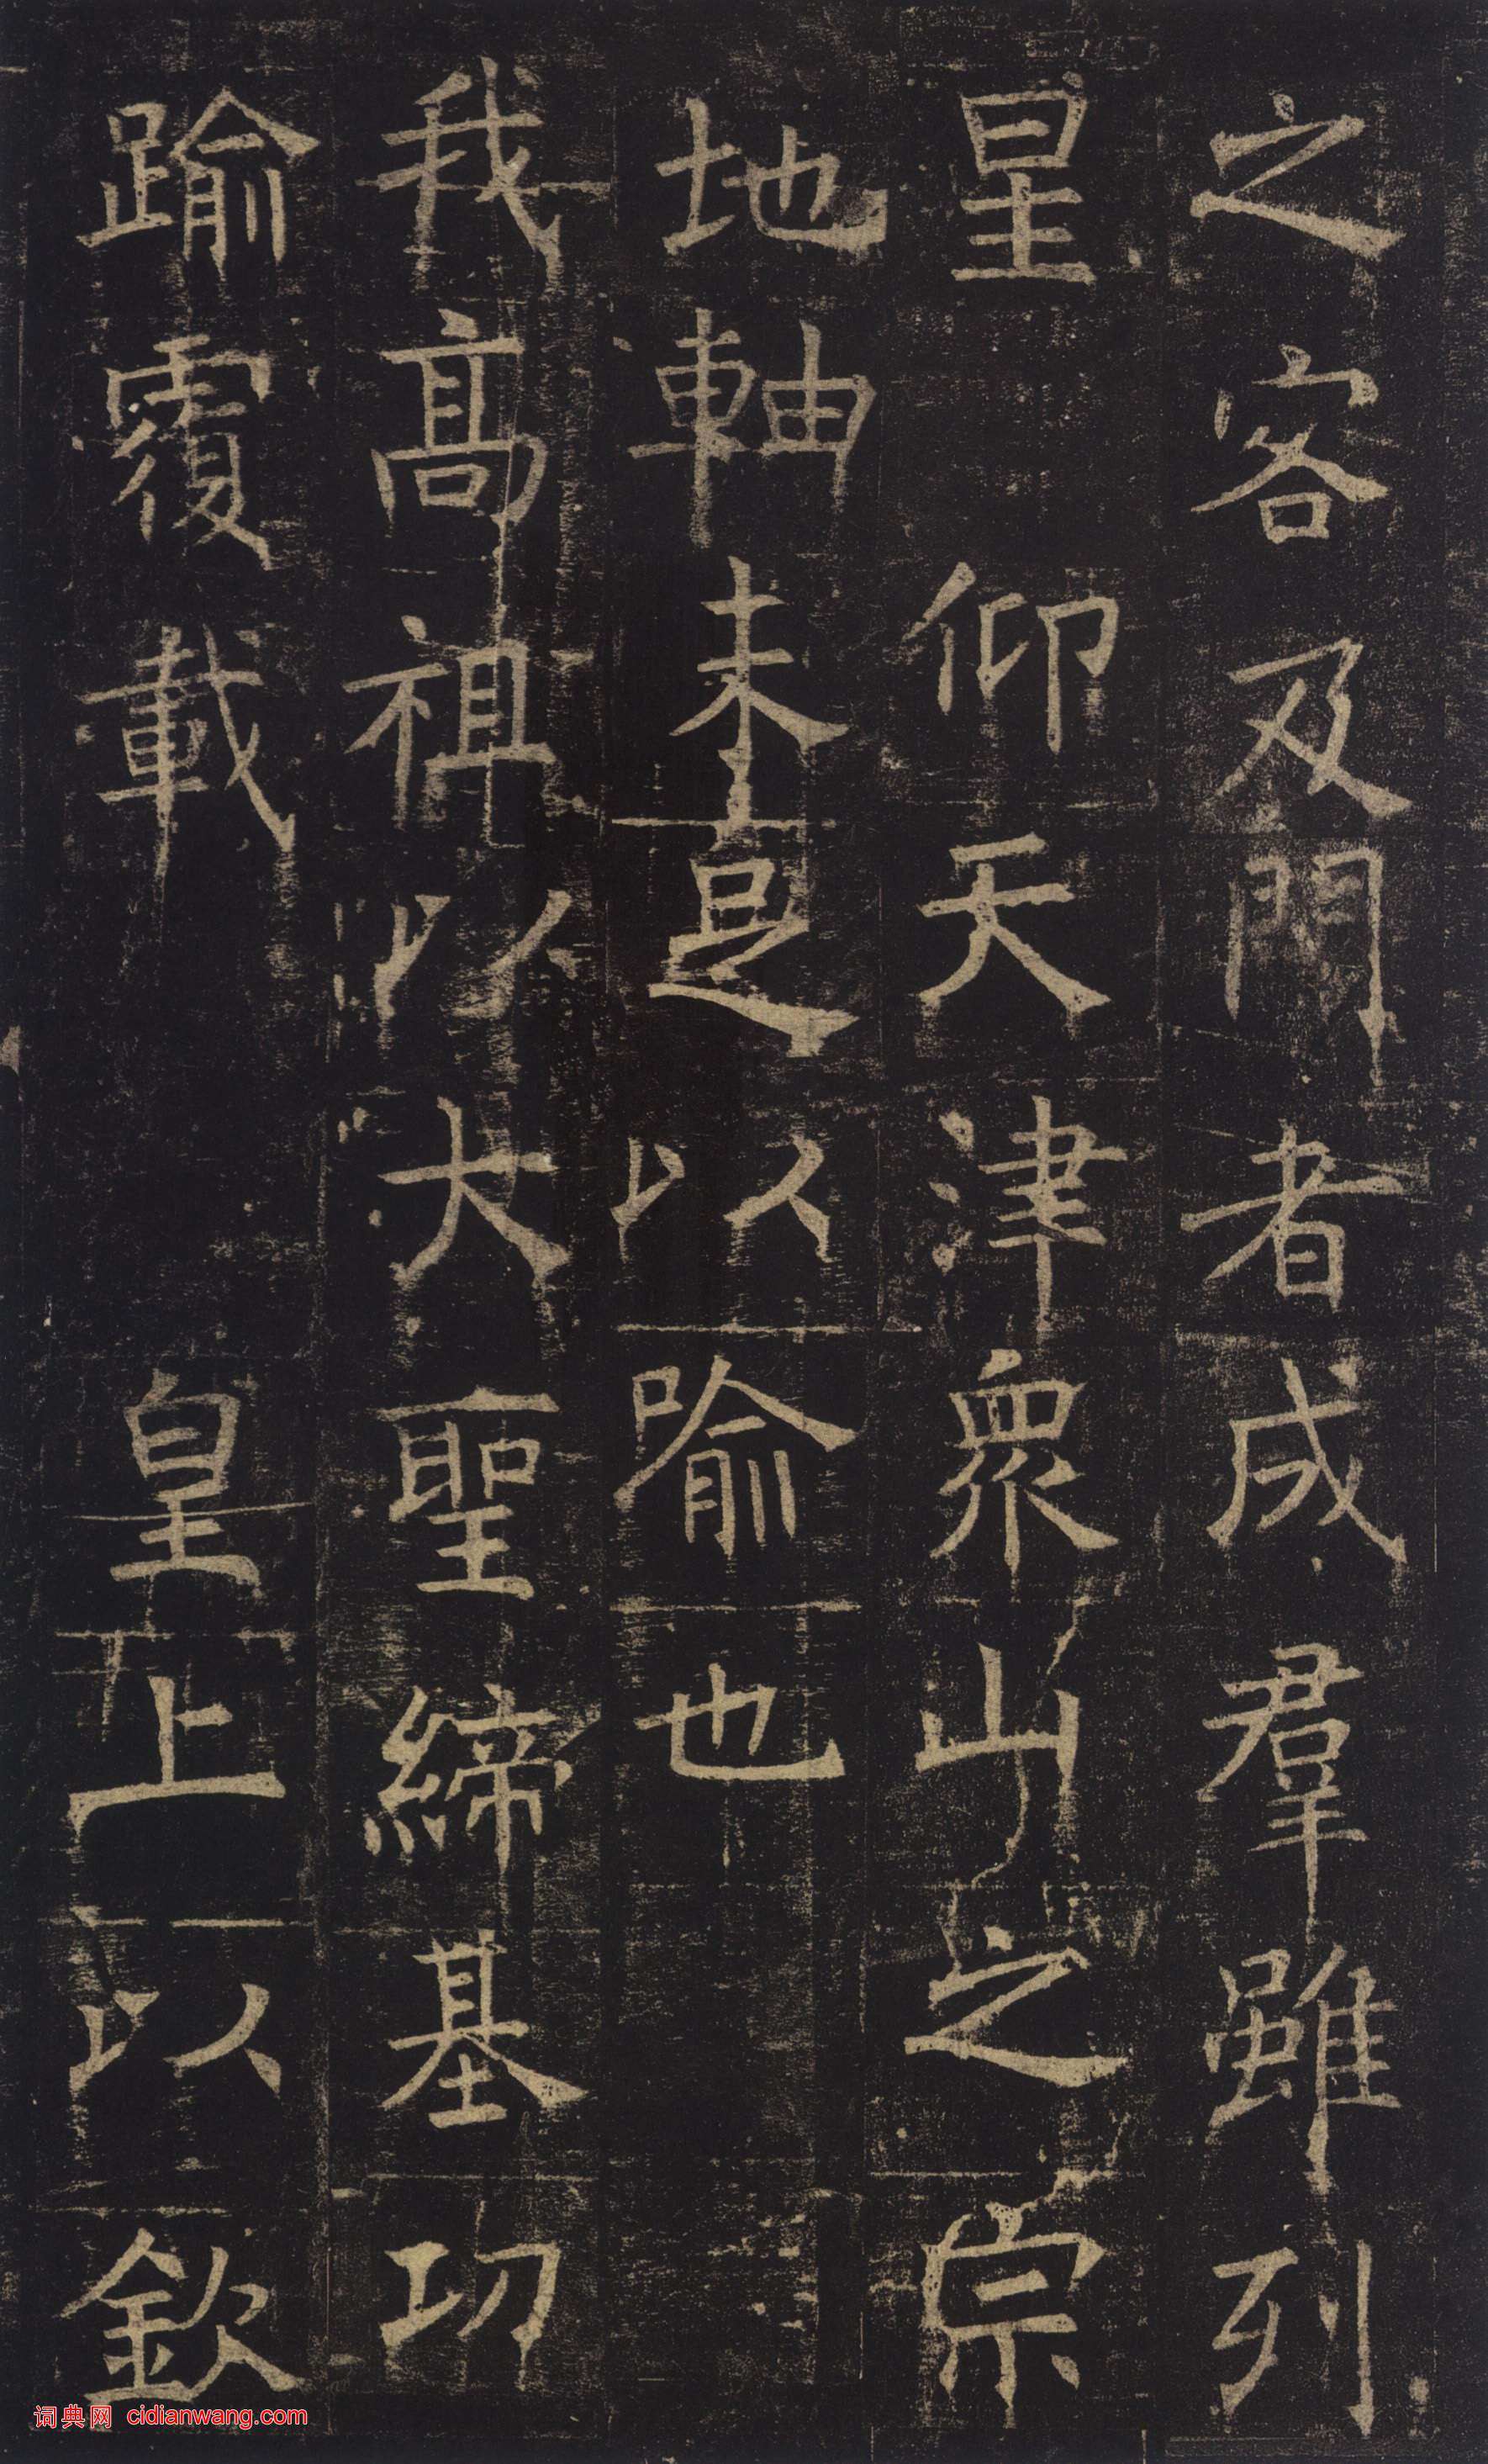 之客及門者成羣雖列
星仰天津衆山之宗
地軸未足以喻也
我高祖以大聖締基功
踰覆載皇上以欽
词典网 cidianwang.com